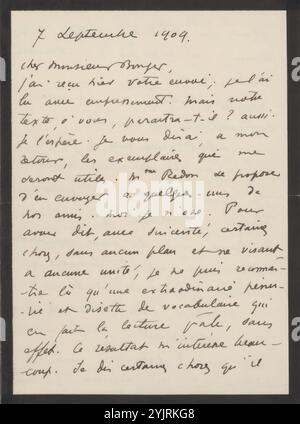 7 Septembre 1909.
cher Monsieur Bonger,
j'ai reçu hier votre envoi; je l'ai
lu avec empressement. mais notre
texte à vous, paraîtra-t-il? aussi.
Je l'espère. je vous dirai, à mon
retour, les exemplaires qui me
seront utile. Mme Redon se propose
d'en envoyer à quelques-uns de
nos amis. moi je n'ose. Pour
avoir dit, avec sincérité, certaines
choses, sans aucun plan et ne visant
à aucune unité, je ne puis reconnaî-
tre là qu'une extraordinaire pénu-
rie et disette de vocabulaire qui
en fait la lecture pâle, sans
effet. Ce résultat m'intéresse beau-
coup. Je dis certaines choses qu'il
alamy
Image ID: 2YJRKG8
www.alamy.com